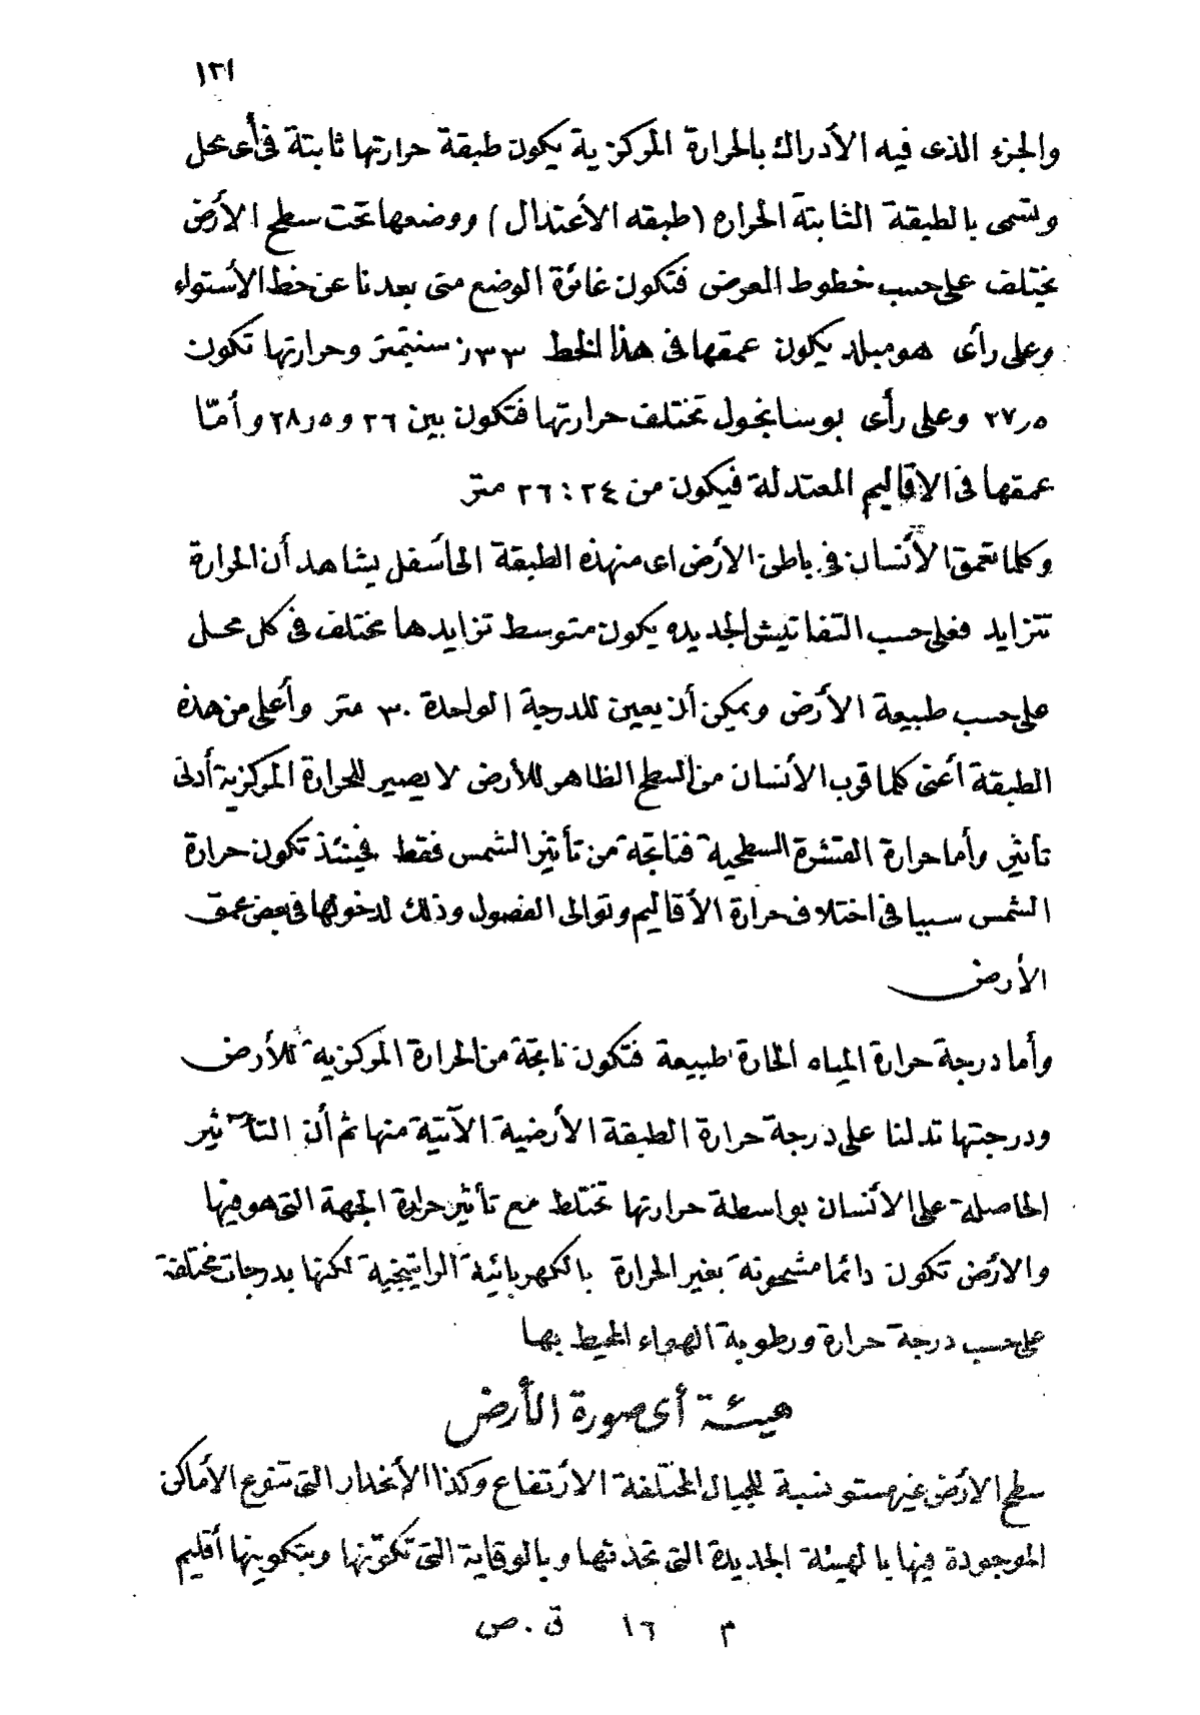 ١٢١
والجزء الذى فيه الأدراك بالحرارة المركزية يكون طبقة حرارتها ثابتة فى أى محل
وتسمى بالطبقة الثابتة الحراره (طبقه الأعتدال) ووضعها تحت سطح الأرض
يختلف على حسب خطوط العرض فتكون غائرة الوضع متى بعدنا عن خط الأستواء
وعلى رأى هومبلد يكون عمقها فى هذا الخط ٣٣ر سنتيمتر وحرارتها تكون
٢٧ر٥ وعلى رأى بوسانجول تختلف حرارتها فتكون بين ٢٦ و ٢٨ر٥ وأمّا
عمقها فى الاقاليم المعتدلة فيكون من ٢٤ : ٢٦ متر
وكلما تعمق الأنسان فى باطن الأرض اى من هذه الطبقة الى أسفل يشاهد أن الحرارة
تتزايد فعلى حسب التفاتيش الجديده يكون متوسط تزايدها مختلف فى كل محل
على حسب طبيعة الأرض ويمكن أن يعين للدرجة الواحدة ٣٠ متر وأعلى من هذه
الطبقة أعنى كلما قرب الأنسان من السطح الظاهر للأرض لا يصير للحرارة المركزية أدنى
تأثير وأما حرارة القشرة السطحية فناتجة من تأثير الشمس فقط فحينئذ تكون حرارة
الشمس سببا فى اختلاف حرارة الأقاليم وتوالى الفصول وذلك لدخولها فى بعض عمق
الأرض
وأما درجة حرارة المياه الحارة طبيعة فتكون ناتجة من الحرارة المركزية للأرض
ودرجتها تدلنا على درجة حرارة الطبقة الأرضية الآتية منها ثم أن التأثير
الحاصلة على الأنسان بواسطة حرارتها تختلط مع تأثير حرارة الجهة التى هو فيها
والارض تكون دائما مشحونة بغير الحرارة بالكهربائية الراتينجية لكنها بدرجات مختلفة
على حسب درجة حرارة ورطوبة الهواء المحيط بها
هيئة أى صورة الأرض
سطح الأرض غير مستو نسبة للجبال المختلفة الارتفاع وكذا الأنحدار التى تتنوع الأماكن
الموجودة فيها بالهيئة الجديدة التى تحدثها وبالوقاية التى تكوّنها وبتكوينها أقليم
م ١٦ ق . ص